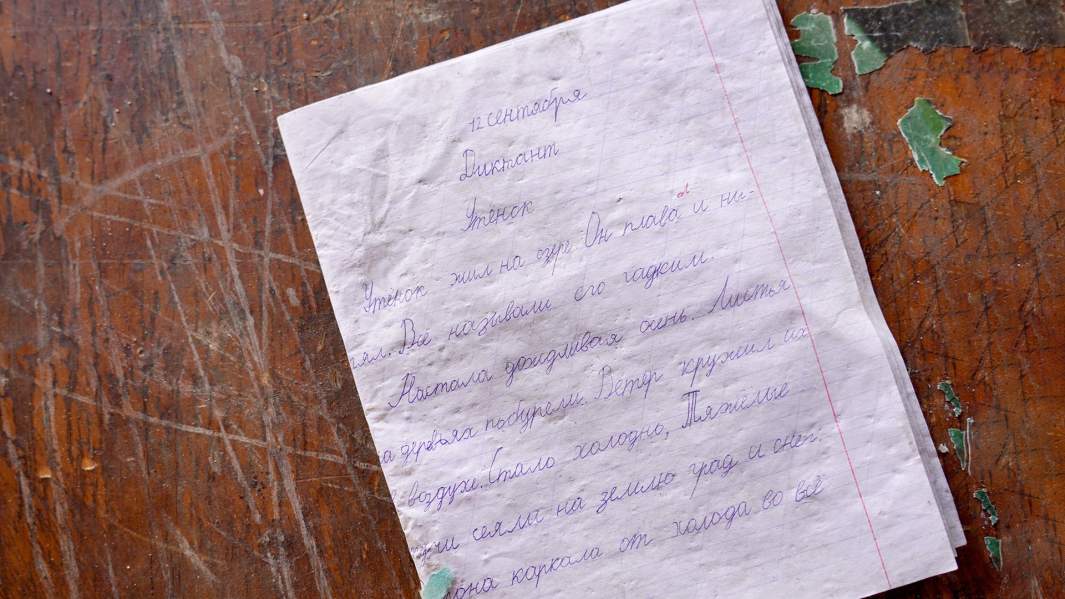 12 сентября
Диктант
Утёнок
Утёнок жил на озре. Он плавал и ны-
рял. Всё называли его гадким.
Настала дождливая осень. Листья
а деревьях побурели. Ветер кружил их
воздухи. Стало холодно, Тяжёлые
учи сеяли на землю град и снег.
рона каркала от холода во всё